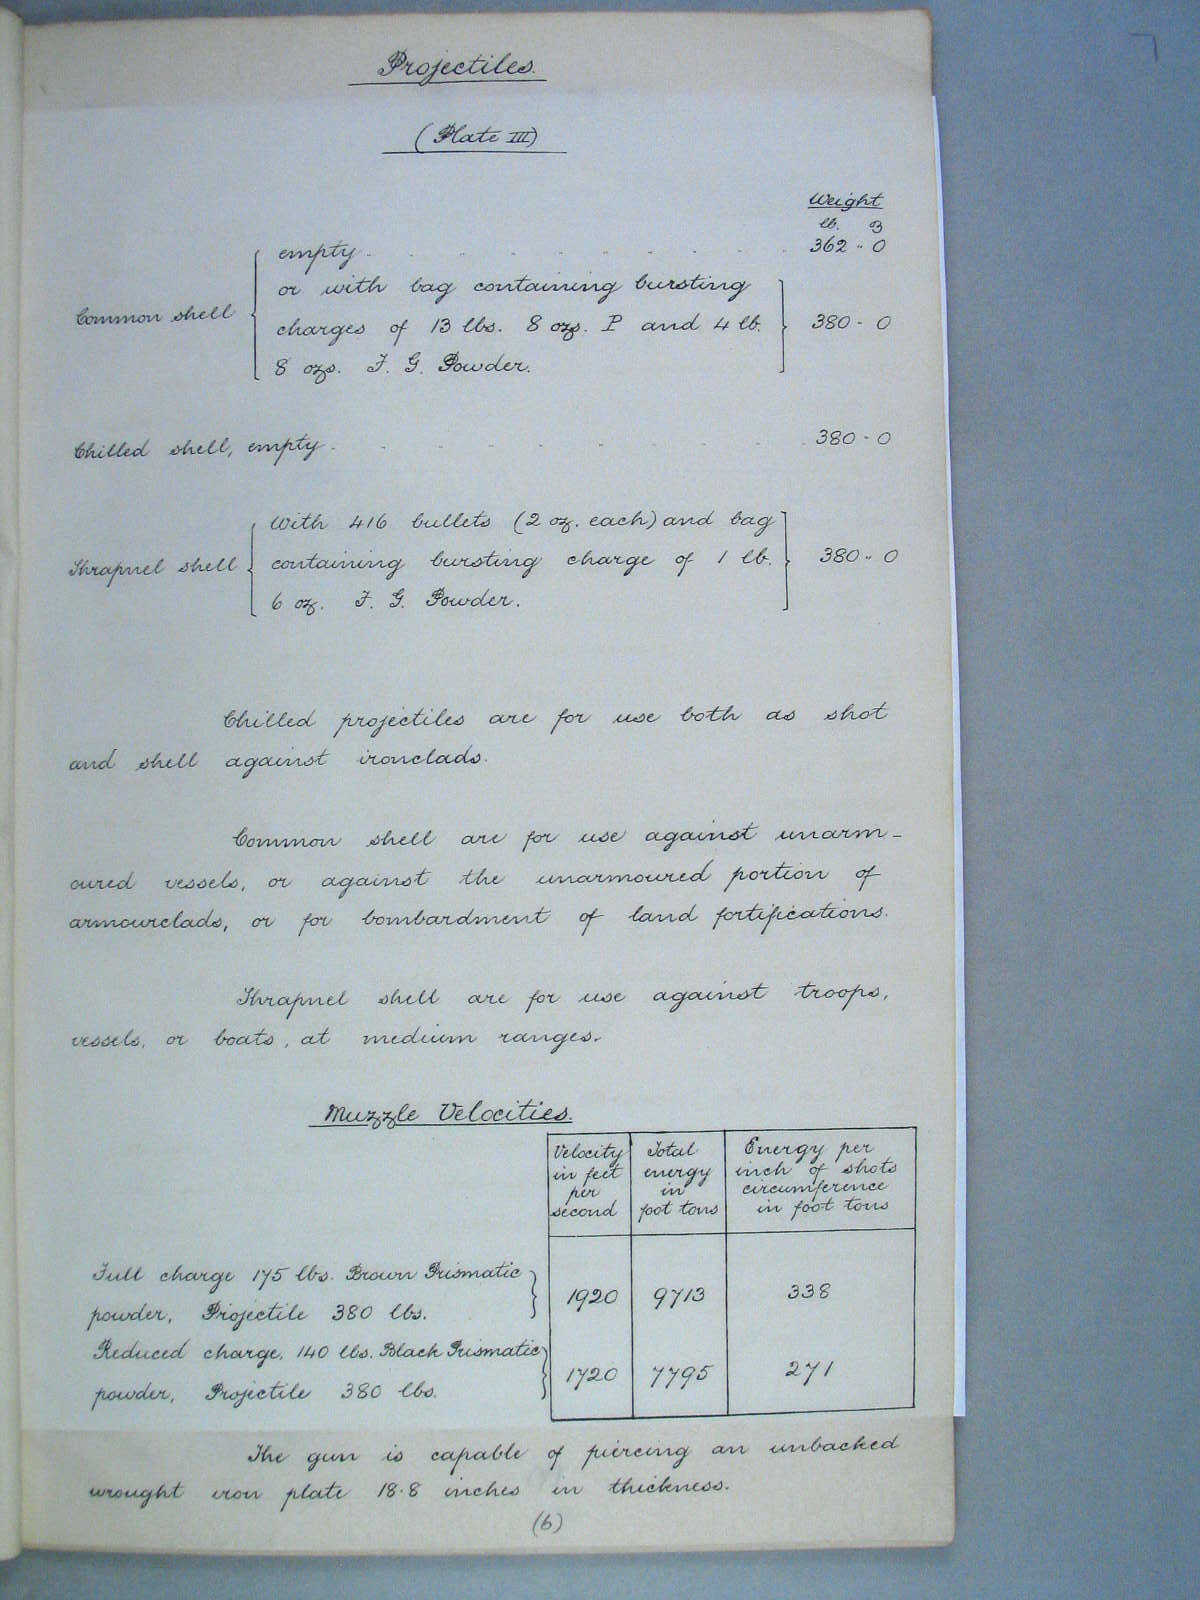 Projectiles.
(Plate III)
Weight
lb. oz
empty . . . . . . . . . 362 .. 0
or with bag containing bursting
Common shell charges of 13 lbs. 8 ozs. P and 4 lb. 380 - 0
8 ozs. F. G. Powder.
Chilled shell, empty . . . . . . . . 380 - 0
With 416 bullets (2 oz. each) and bag
Shrapnel shell containing bursting charge of 1 lb. 380 .. 0
6 oz. F. G. Powder.
Chilled projectiles are for use both as shot
and shell against ironclads.
Common shell are for use against unarm-
oured vessels, or against the unarmoured portion of
armourclads, or for bombardment of land fortifications.
Shrapnel shell are for use against troops,
vessels, or boats, at medium ranges.
Muzzle Velocities.
Velocity Total Energy per
in feet energy inch of shots
per in circumference
second foot tons in foot tons
Full charge 175 lbs. Brown Prismatic
powder, Projectile 380 lbs. 1920 9713 338
Reduced charge, 140 lbs. Black Prismatic
powder, Projectile 380 lbs. 1720 7795 271
The gun is capable of piercing an unbacked
wrought iron plate 18.8 inches in thickness.
(6)